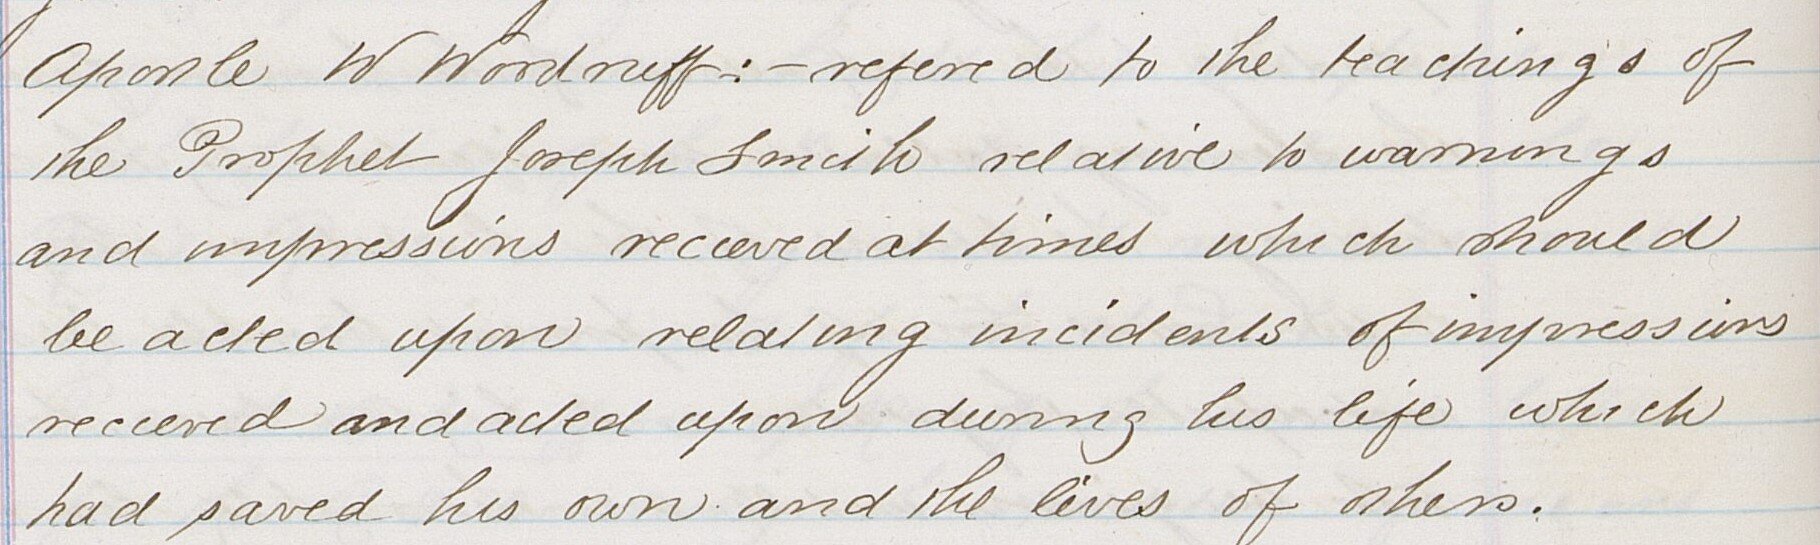 Apostle W Wordruff:- refered to the teachings of
the Prophet Joseph Smith relative to warnings
and impressions recieved at times which should
be acted upon relating incidents of impressions
recieved and acted upon during his life which
had saved his own and the lives of others.